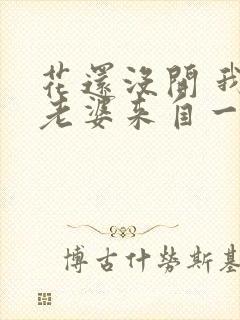 花還沒開 我
老婆來自一
博古什勞斯基